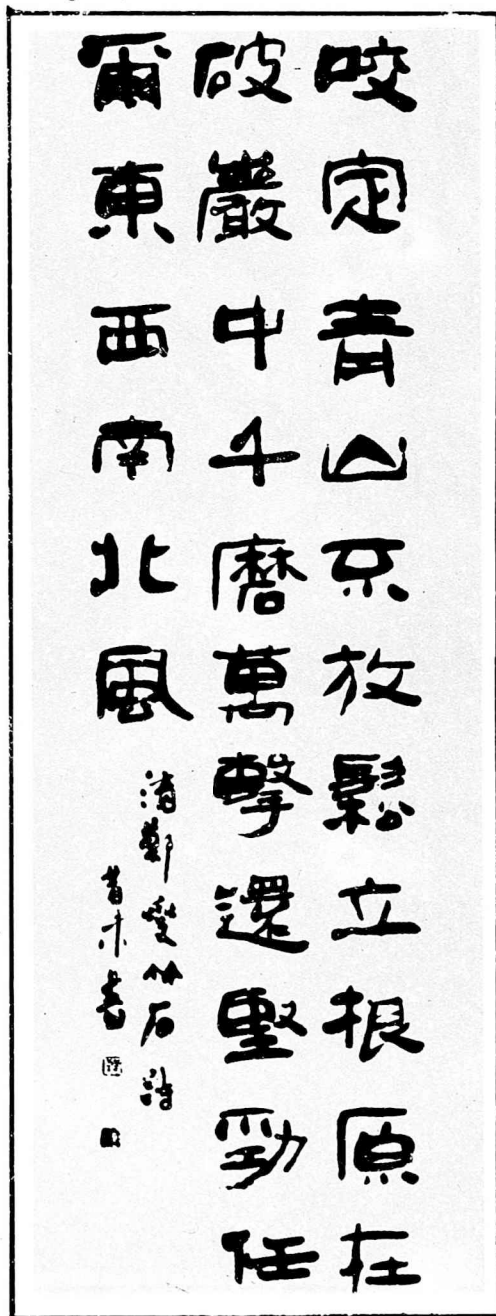 咬定青山不放鬆立根原在
破巖中千磨萬擊還堅勁任
爾東西南北風
清鄭燮竹石詩
書